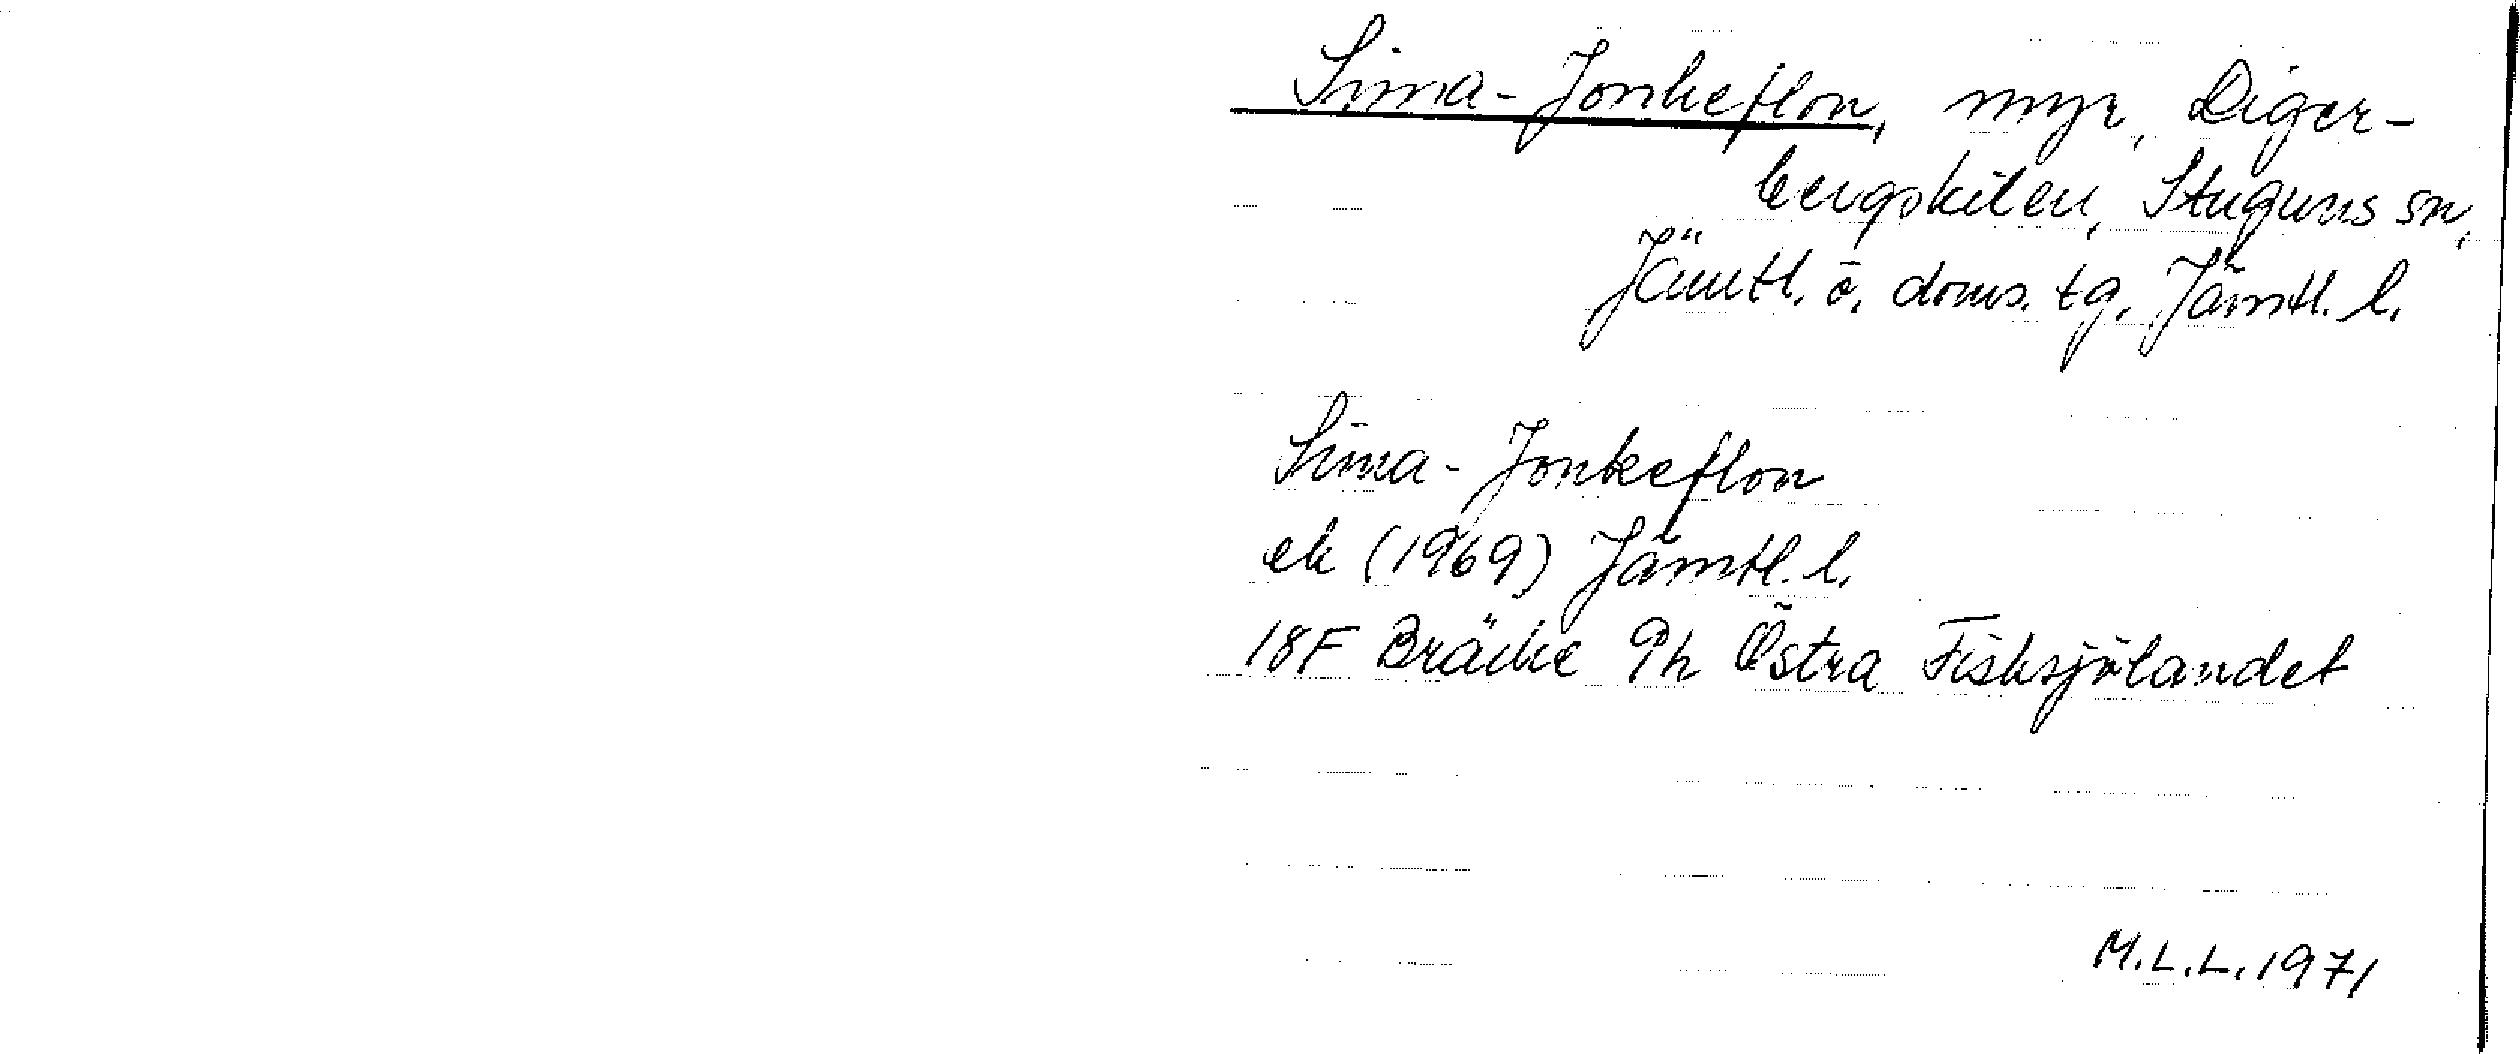 Sima-Jonkeflon, myr, Diger-
bergskilen, Stuguns sn,
Jämtl. ö. doms. tg. Jämtl. l.
Sima-Jonkeflon
ek (1969) Jämtl. l.
18F Bräcke 9h Östra Fisksjölandet
M.L.L. 1971